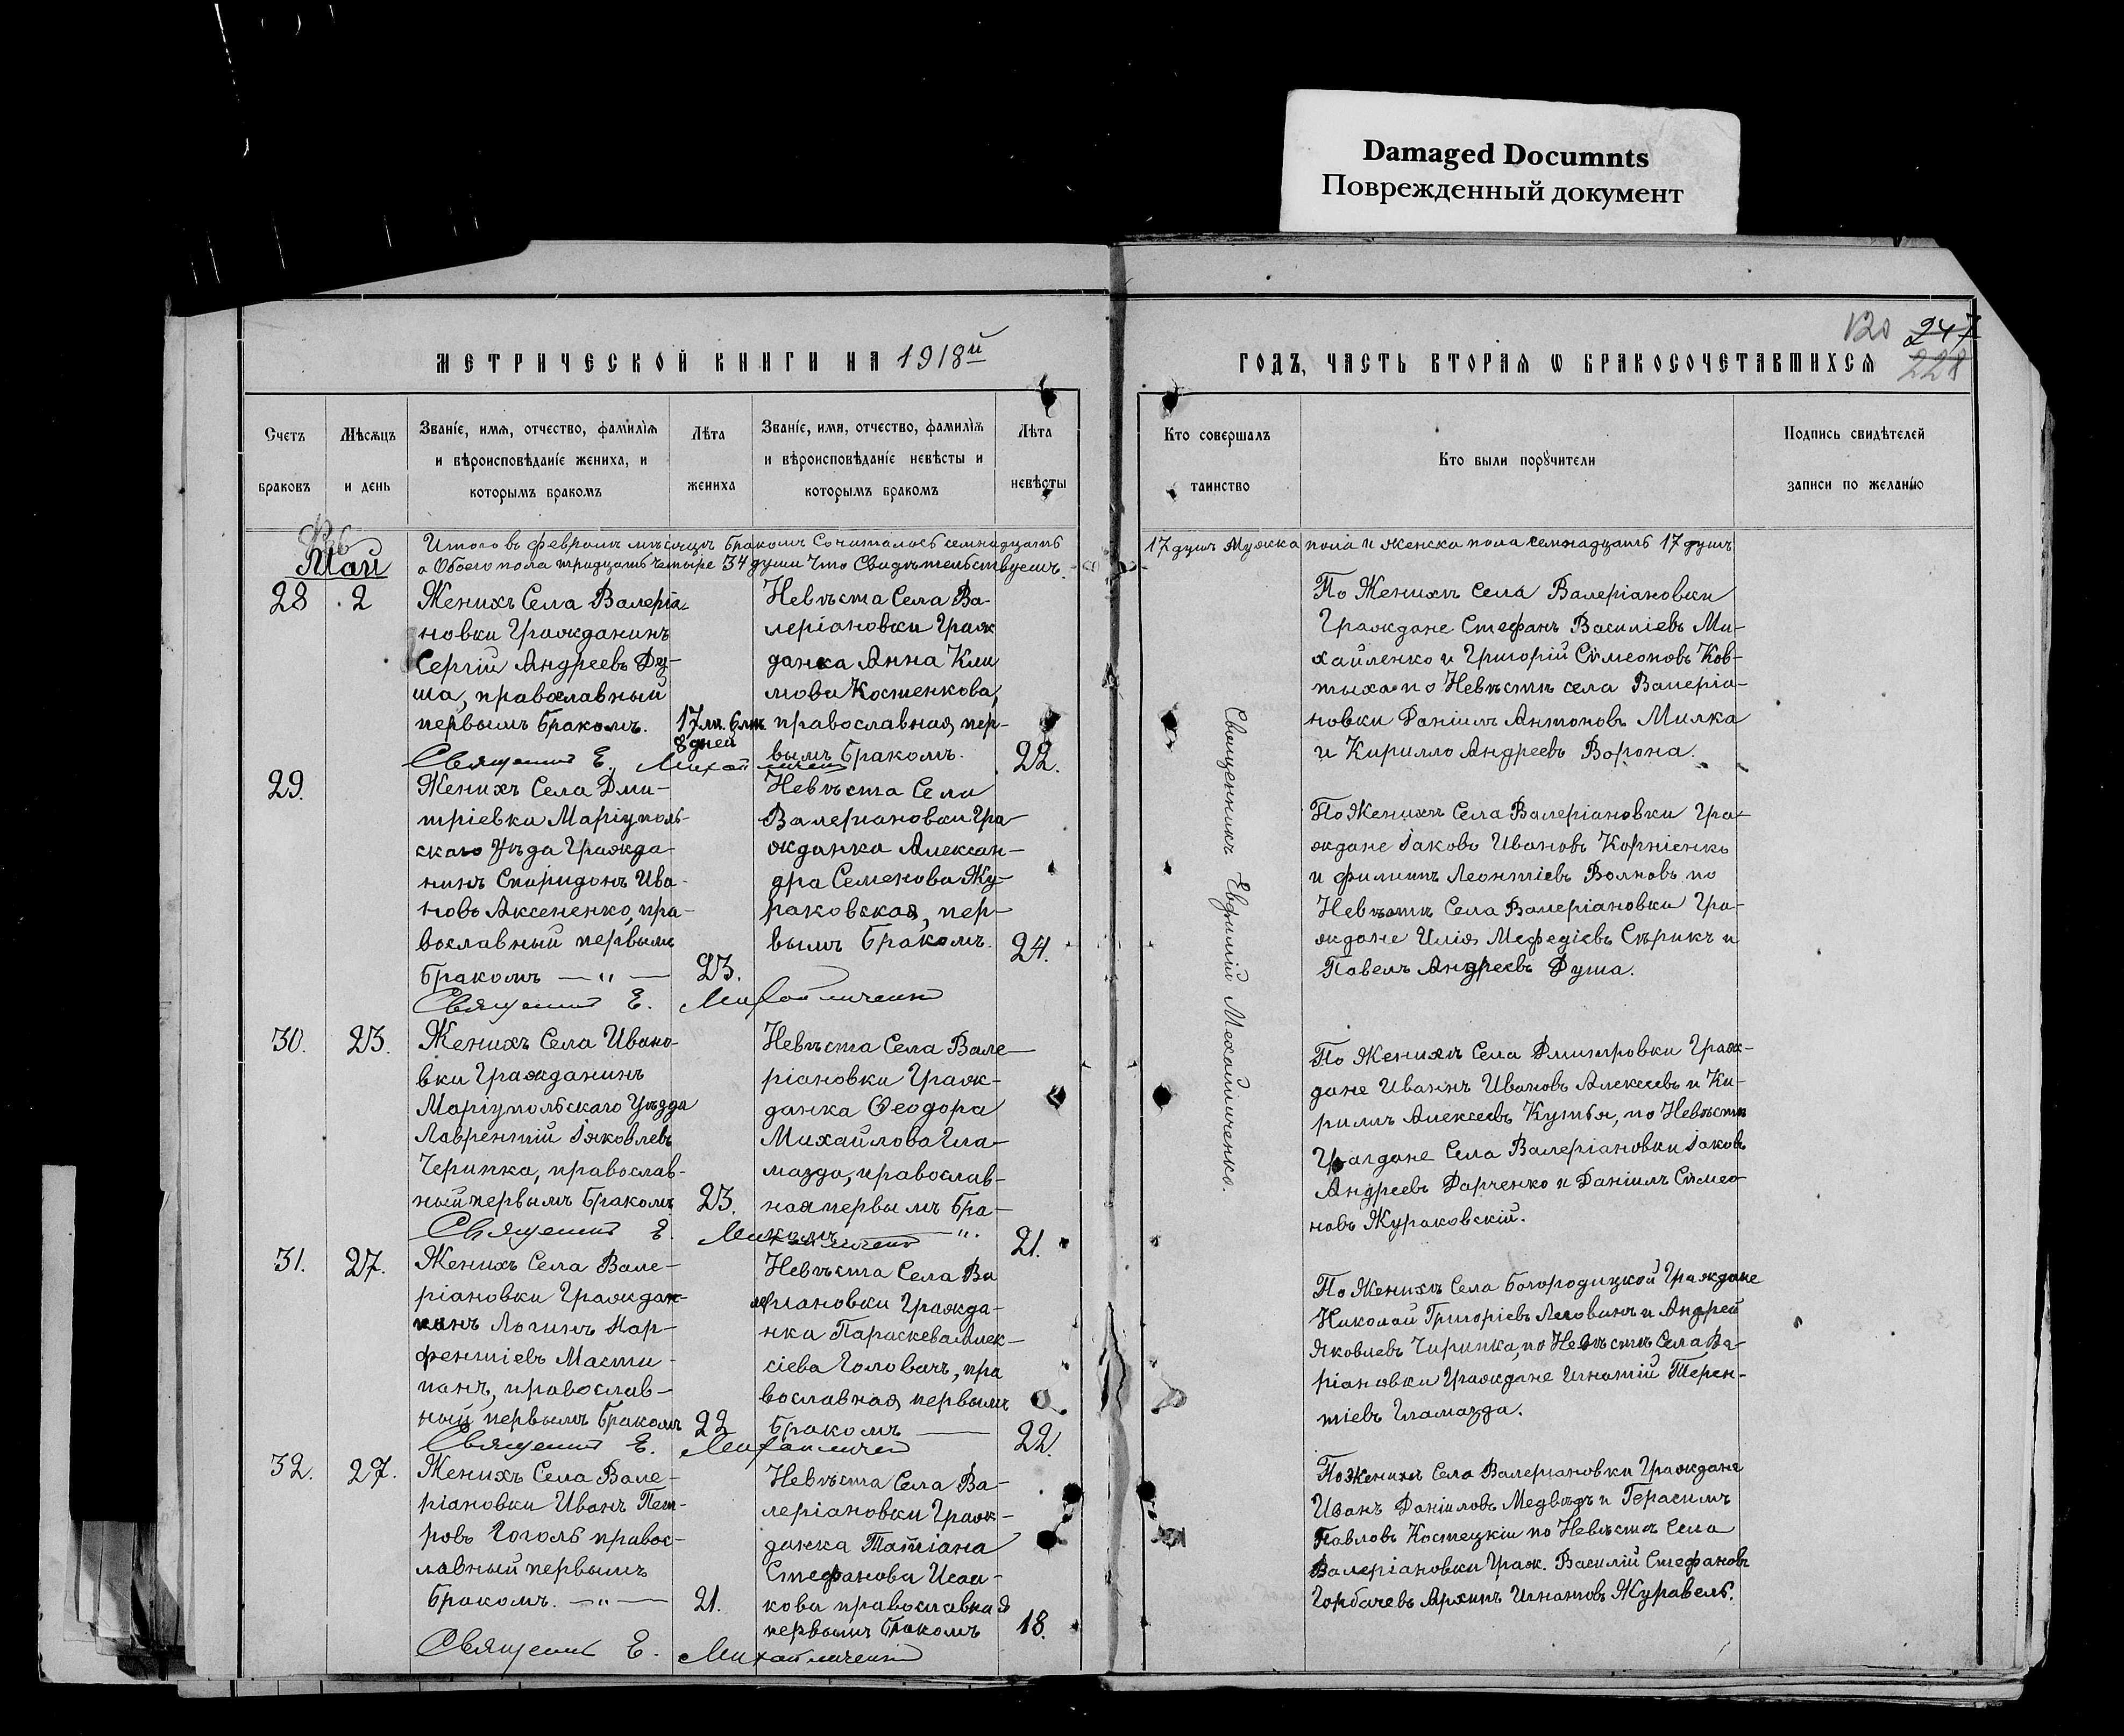 Damaged Documnts
Поврежденный документ
МЕТРИЧЕСКОЙ КНИГИ НА 1918й
ГОДЪ, ЧАСТЬ ВТОРАЯ Ѡ БРАКОСОЧЕТАВШИХСЯ
120 247
228
Счетъ
браковъ
Мѣсяцъ
и день
Званіе, имя, отчество, фамилія
и вѣроисповѣданіе жениха, и
которымъ бракомъ
Лѣта
жениха
Званіе, имя, отчество, фамилія
и вѣроисповѣданіе невѣсты и
которымъ бракомъ
Лѣта
невѣсты
Кто совершалъ
таинство
Кто были поручители
Подпись свидѣтелей
записи по желанію
Итого въ февралѣ мѣсяцѣ бракомъ сочиталось семнадцать
17 душъ мужска пола и женска пола семнадцать 17 душъ
а обоего пола тридцать четыре 34 души что свидѣтельствуемъ.
Май
28
2
Женихъ Села Валеріа-
новки Гражданинъ
Сергій Андреевъ Ду-
ша, православный
первымъ бракомъ.
17 лѣ. 6 м.
8 дней
Невѣста Села Ва-
леріановки Граж
данка Анна Кли
мова Костенкова,
православная, пер-
вымъ бракомъ.
22.
Священник Е. Михайличенко
По Женихѣ села Валеріановки
Граждане Стефанъ Василіевъ Ми-
хайленко и Григорій Симеоновъ Ков-
тыха по Невѣстѣ села Валеріа-
новки Даніилъ Антоновъ Милка
и Кирилло Андреевъ Ворона.
29.
Женихъ Села Дми-
тріевки Маріуполь-
скаго Уѣзда Гражда-
нинъ Спиридонъ Ива-
новъ Аксененко, пра-
вославный первымъ
бракомъ — „ —
23.
Невѣста Села
Валеріановки Гра-
жданка Алексан-
дра Семенова Жу-
раковская, пер-
вымъ бракомъ.
24.
Священник Е. Михайличенко
По Женихѣ Села Валеріановки Гра-
ждане Іаковъ Ивановъ Корніенко
и Филиппъ Леонтіевъ Волновъ по
Невѣстѣ Села Валеріановки Гра-
ждане Илія Мефедіевъ Сѣрикъ и
Павелъ Андреевъ Душа.
Священникъ Евфимій Михайличенко.
30.
23.
Женихъ Села Ивано-
вки Гражданинъ
Маріупольскаго Уѣзда
Лаврентій Іаковлевъ
Черипка, православ-
ный первымъ бракомъ
23.
Невѣста Села Вале-
ріановки Граж-
данка Ѳеодора
Михайлова Гла-
мазда, православ-
ная первымъ бра-
комъ — „.
21.
Священник Е. Михайличенко
По Женихѣ Села Дмитровки Граж-
дане Иванъ Ивановъ Алексеевъ и Ки-
рилъ Алексеевъ Кутья, по Невѣстѣ
Граждане Села Валеріановки Іаковъ
Андреевъ Дарченко и Даніилъ Симео-
новъ Жураковскій.
31.
27.
Женихъ Села Вале-
ріановки Граждан-
нинъ Логинъ Пар-
фентіевъ Масти-
панъ, православ-
ный первымъ бракомъ
22
Невѣста Села Ва
леріановки Гражда-
нка Параскева Алек-
сіева Головачъ, пра
вославная первымъ
бракомъ —
22.
Священник Е. Михайличен
По Женихѣ Села Богородицкой Граждане
Николай Григоріевъ Леговинъ и Андрей
Яковлевъ Чирипка, по Невѣстѣ Села Ва-
ріановки Граждане Игнатій Терен-
тіевъ Гламазда.
32.
27.
Женихъ Села Вале-
ріановки Иванъ Пет-
ровъ Гоголь правос-
лавный первымъ
бракомъ. — „ —
21.
Невѣста Села Ва-
леріановки Граж-
данка Татіана
Стефанова Исаи-
кова православная
первымъ бракомъ
18.
Священник Е. Михайличенко
По Женихѣ Села Валеріановки Граждане
Иванъ Даніиловъ Медвѣдь и Герасимъ
Павловъ Костецкій по Невѣстѣ Села
Валеріановки Граж. Василій Стефановъ
Горбачевъ Архипъ Игнатовъ Журавель.